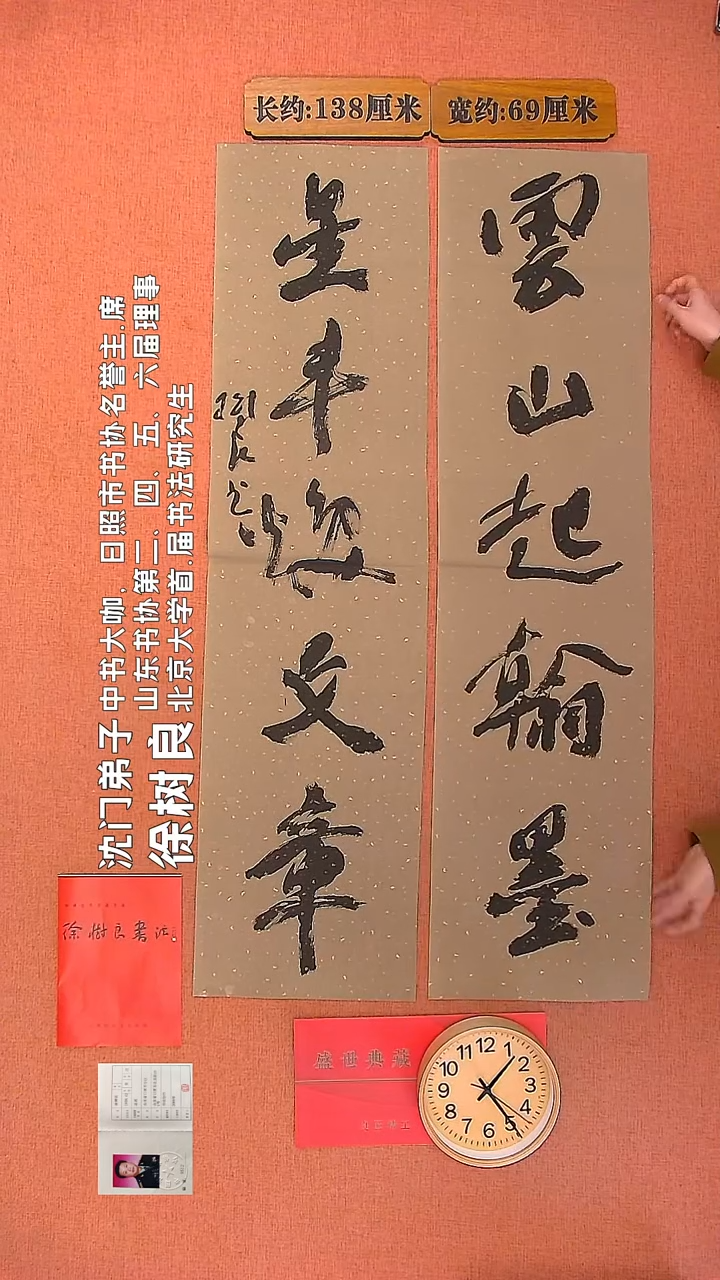 长约:138厘米
宽约:69厘米
雲山起翰墨
星斗焕文章
沈门弟子
中书大咖,日照市书协名誉主.席
山东书协第二、四、五、六届理事
徐树良
北京大学首.届书法研究生
徐树良書法
盛世典藏
12
1
2
3
4
5
6
7
8
9
10
11